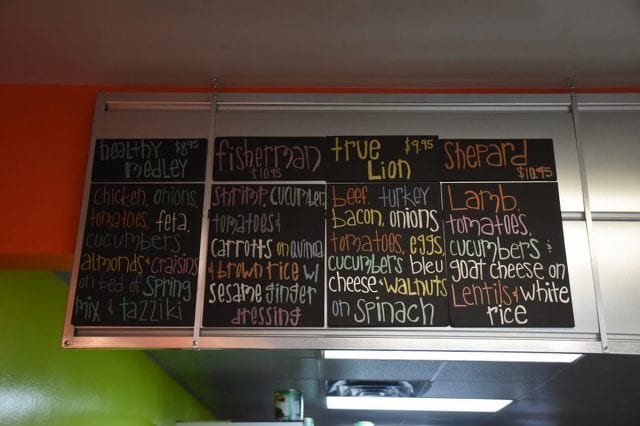 healthy $8.95
medley
chicken, onions,
tomatoes, feta,
cucumbers
almonds & craisins
on bed of spring
mix & tazziki
fisherman
$10.95
shrimp, cucumber,
tomatoes &
carrotts on quinoa
& brown rice w/
sesame ginger
dressing
true $9.95
Lion
beef, turkey
bacon, onions
tomatoes, eggs,
cucumbers bleu
cheese & walnuts
on spinach
shepard
$10.95
Lamb,
tomatoes,
cucumbers &
goat cheese on
Lentils & white
rice